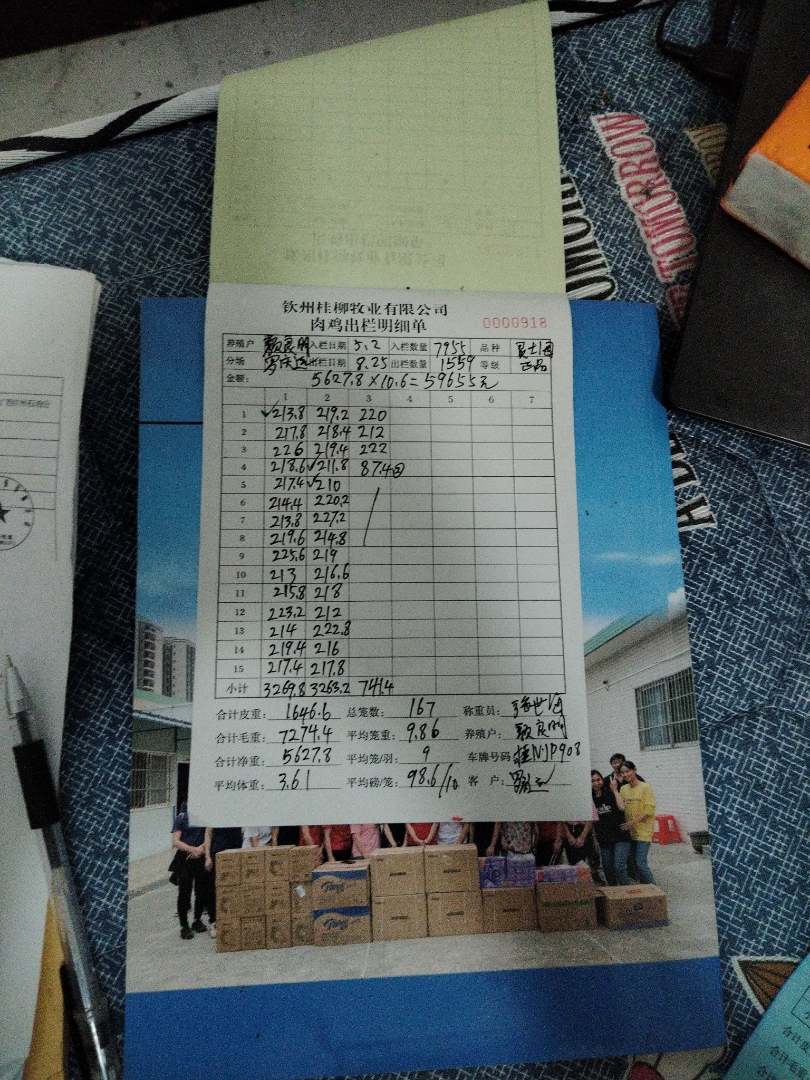 钦州桂柳牧业有限公司
肉鸡出栏明细单 0000918
养殖户 入栏日期 5.2 入栏数量 7955 品种
分场 出栏日期 8.25 出栏数量 1559 等级 正品
金额： 5627.8×10.6=59655元
1 2 3 4 5 6 7
1 ✓213.8 219.2 220
2 217.8 218.4 212
3 226 219.4 222
4 218.6 ✓211.8 87.4④
5 217.4 ✓210
6 214.4 220.2
7 213.8 227.2
8 219.6 214.8
9 225.6 219
10 213 216.6
11 215.8 218
12 223.2 212
13 214 222.8
14 219.4 216
15 217.4 217.8
小计 3269.8 3263.2 741.4
合计皮重： 1646.6 总笼数： 167 称重员：
合计毛重： 7274.4 平均笼重： 9.86 养殖户：
合计净重： 5627.8 平均笼/羽： 9 车牌号码 桂NJP908
平均体重： 3.61 平均磅/笼： 98.6/10 客户：
TOMORROW